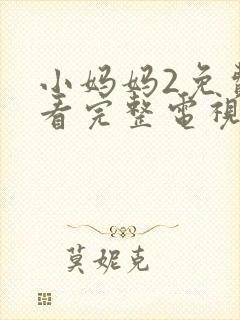 小妈妈2免費
看完整電視
莫妮克